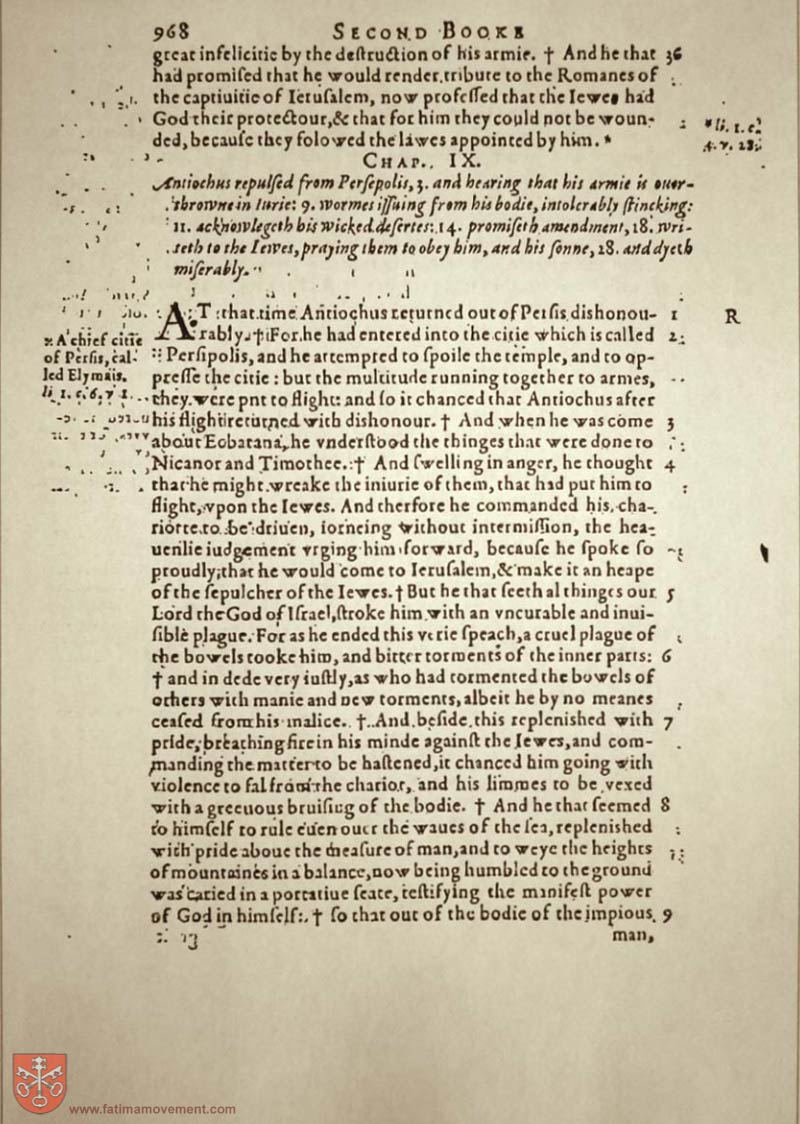 968 SECOND BOOKE
great infelicitie by the deſtruction of his armie. † And he that 36
had promiſed that he would render tribute to the Romanes of
the captiuitie of Ieruſalem, now profeſſed that the Iewes had
God their protectour, & that for him they could not be woun-
ded, becauſe they folowed the lawes appointed by him. *
*li. 1. c.
4. v. 28.
CHAP. IX.
Antiochus repulſed from Perſepolis, 3. and hearing that his armie is ouer-
throwne in Iurie: 9. wormes iſſuing from his bodie, intolerably ſtincking:
11. acknowlegeth his wicked deſertes: 14. promiſeth amendment, 18. wri-
teth to the Iewes, praying them to obey him, and his ſonne, 28. and dyeth
miſerably.
AT that time Antiochus returned out of Perſis dishonou- 1 R
rably. † For he had entered into the citie which is called 2
:: A chief citie
of Perſis, cal-
led Elymais.
li. 1. c. 6. v. 1.
:: Perſipolis, and he attempted to ſpoile the temple, and to op-
preſſe the citie: but the multitude running together to armes,
they were put to flight: and ſo it chanced that Antiochus after
his flight returned with dishonour. † And when he was come 3
about Ecbatana, he vnderſtood the thinges that were done to
Nicanor and Timothee. † And ſwelling in anger, he thought 4
that he might wreake the iniurie of them, that had put him to
flight, vpon the Iewes. And therfore he commanded his cha-
riotte to be driuen, iorneing without intermiſſion, the hea-
uenlie iudgement vrging him forward, becauſe he ſpoke ſo
proudly, that he would come to Ieruſalem, & make it an heape
of the ſepulcher of the Iewes. † But he that ſeeth al thinges our 5
Lord the God of Iſrael, ſtroke him with an vncurable and inui-
ſible plague. For as he ended this verie ſpeach, a cruel plague of
the bowels tooke him, and bitter torments of the inner parts: 6
† and in dede very iuſtly, as who had tormented the bowels of
others with manie and new torments, albeit he by no meanes
ceaſed from his malice. † And beſide this replenished with 7
pride, breathing fire in his minde againſt the Iewes, and com-
manding the matter to be haſtened, it chanced him going with
violence to fal from the chariot, and his limmes to be vexed
with a greeuous bruiſing of the bodie. † And he that ſeemed 8
to himſelf to rule euen ouer the waues of the ſea, replenished
with pride aboue the meaſure of man, and to weye the heights
of mountaines in a balance, now being humbled to the ground
was caried in a portatiue ſeate, teſtifying the manifeſt power
of God in himſelf: † ſo that out of the bodie of the impious 9
man,
www.fatimamovement.com